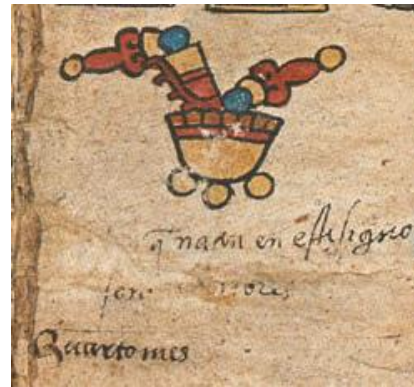 q̃ nada en este signo
señores
Quarto mes